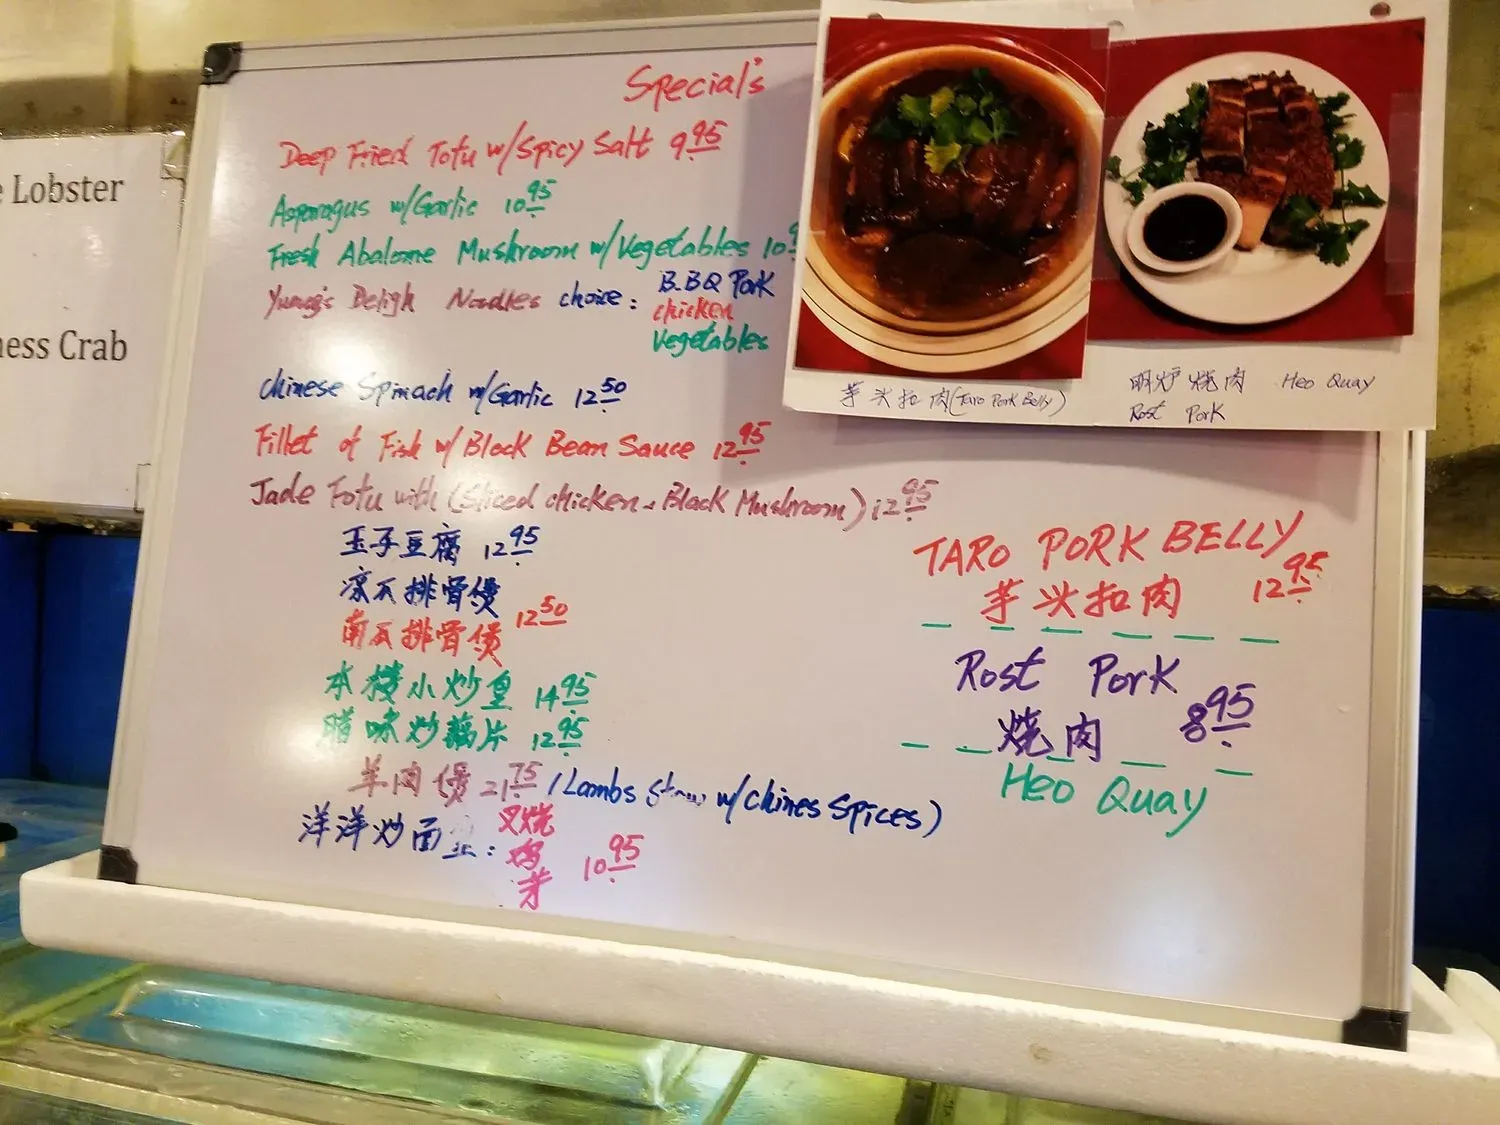 Lobster
ness Crab
Special's
Deep Fried Tofu w/Spicy Salt 9.95
Asparagus w/Garlic 10.95
Fresh Abalome Mushroom w/Vegetables 10
Deligh Noodles choice: B.B.Q Pork
chicken
Vegetables
Chinese Spinach w/Garlic 12.50
Fillet of Fish w/Black Bean Sauce 12.95
Jade Tofu with (Sliced chicken, Black Mushroom) 12.95
玉子豆腐 12.95
凉瓜排骨煲
南瓜排骨煲 12.50
本楼小炒皇 14.95
腊味炒藕片 12.95
羊肉煲 21.75 (Lambs Stew w/Chines Spices)
洋洋炒面 : 叉烧
鸡
芽
10.95
芋头扣肉 (Taro Pork Belly)
明炉烧肉 Heo Quay
Rost Pork
TARO PORK BELLY
芋头扣肉 12.95
Rost Pork
烧肉 8.95
Heo Quay